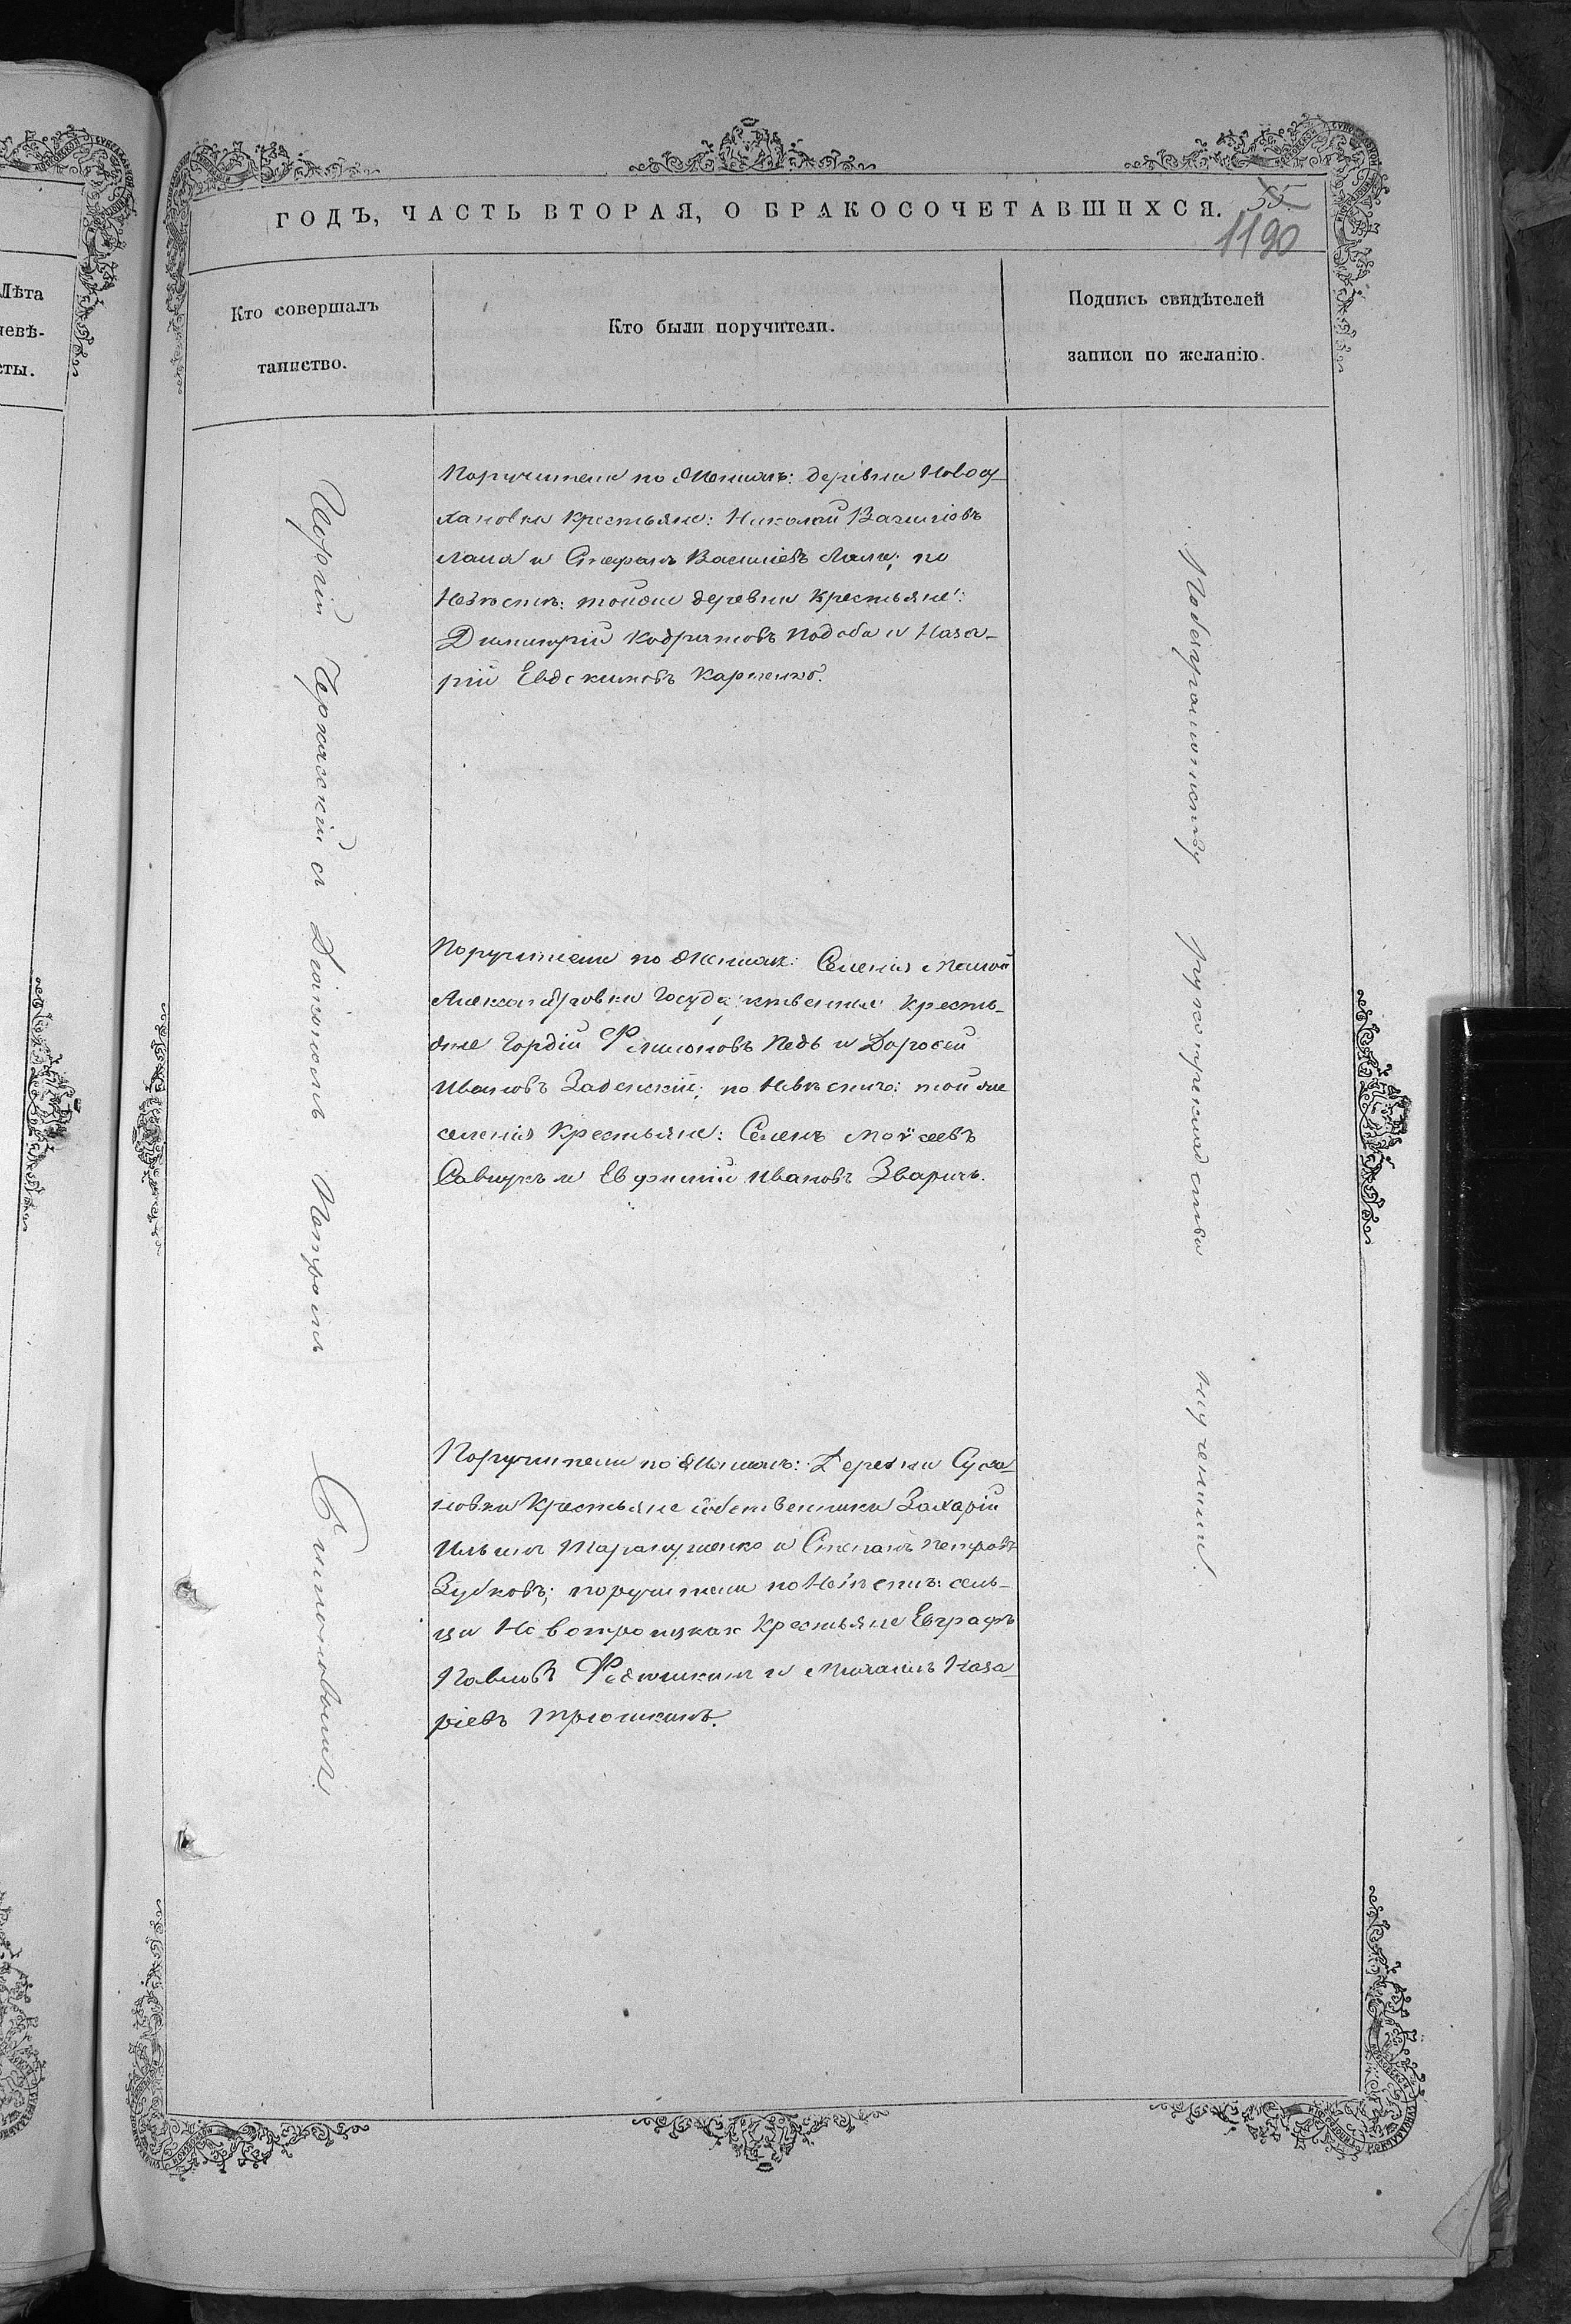 Лѣта
невѣ-
сты.
ГОДЪ, ЧАСТЬ ВТОРАЯ, О БРАКОСОЧЕТАВШИХСЯ.
55
1190
Кто совершалъ
таинство.
Кто были поручители.
Подпись свидѣтелей
записи по желанію.
Іерей Черкасскій съ Діакономъ Петромъ Симоновымъ.
Поручители по Женихѣ: деревни Новоу-
лановки Крестьяне: Николай Василіевъ
Лата и Стефанъ Василіевъ; по
Невѣстѣ: тойже деревни Крестьяне:
Димитрій Кодратовъ Подоба и Наза-
рій Евдокимовъ Карпенко.
Поручители по Женихѣ: Селенія Малой
Александровки Государственные Кресть-
яне Гордій Филимоновъ Педь и Доросей
Ивановъ Заденскій; по Невѣстѣ: той же
селенія Крестьяне: Семенъ Моѵсеевъ
Савчукъ и Евфимій Ивановъ Зваричъ.
Поручители по Женихѣ: Деревни Суха-
новки Крестьяне собственники Захарій
Ильинъ Таранушенко и Степанъ Петровъ
Зубковъ; поручители по Невѣстѣ: сель-
ца Новотроицкаго Крестьяне Евграфъ
Павловъ Федюшкинъ и Михаилъ Наза-
ріевъ Трюшкинъ.